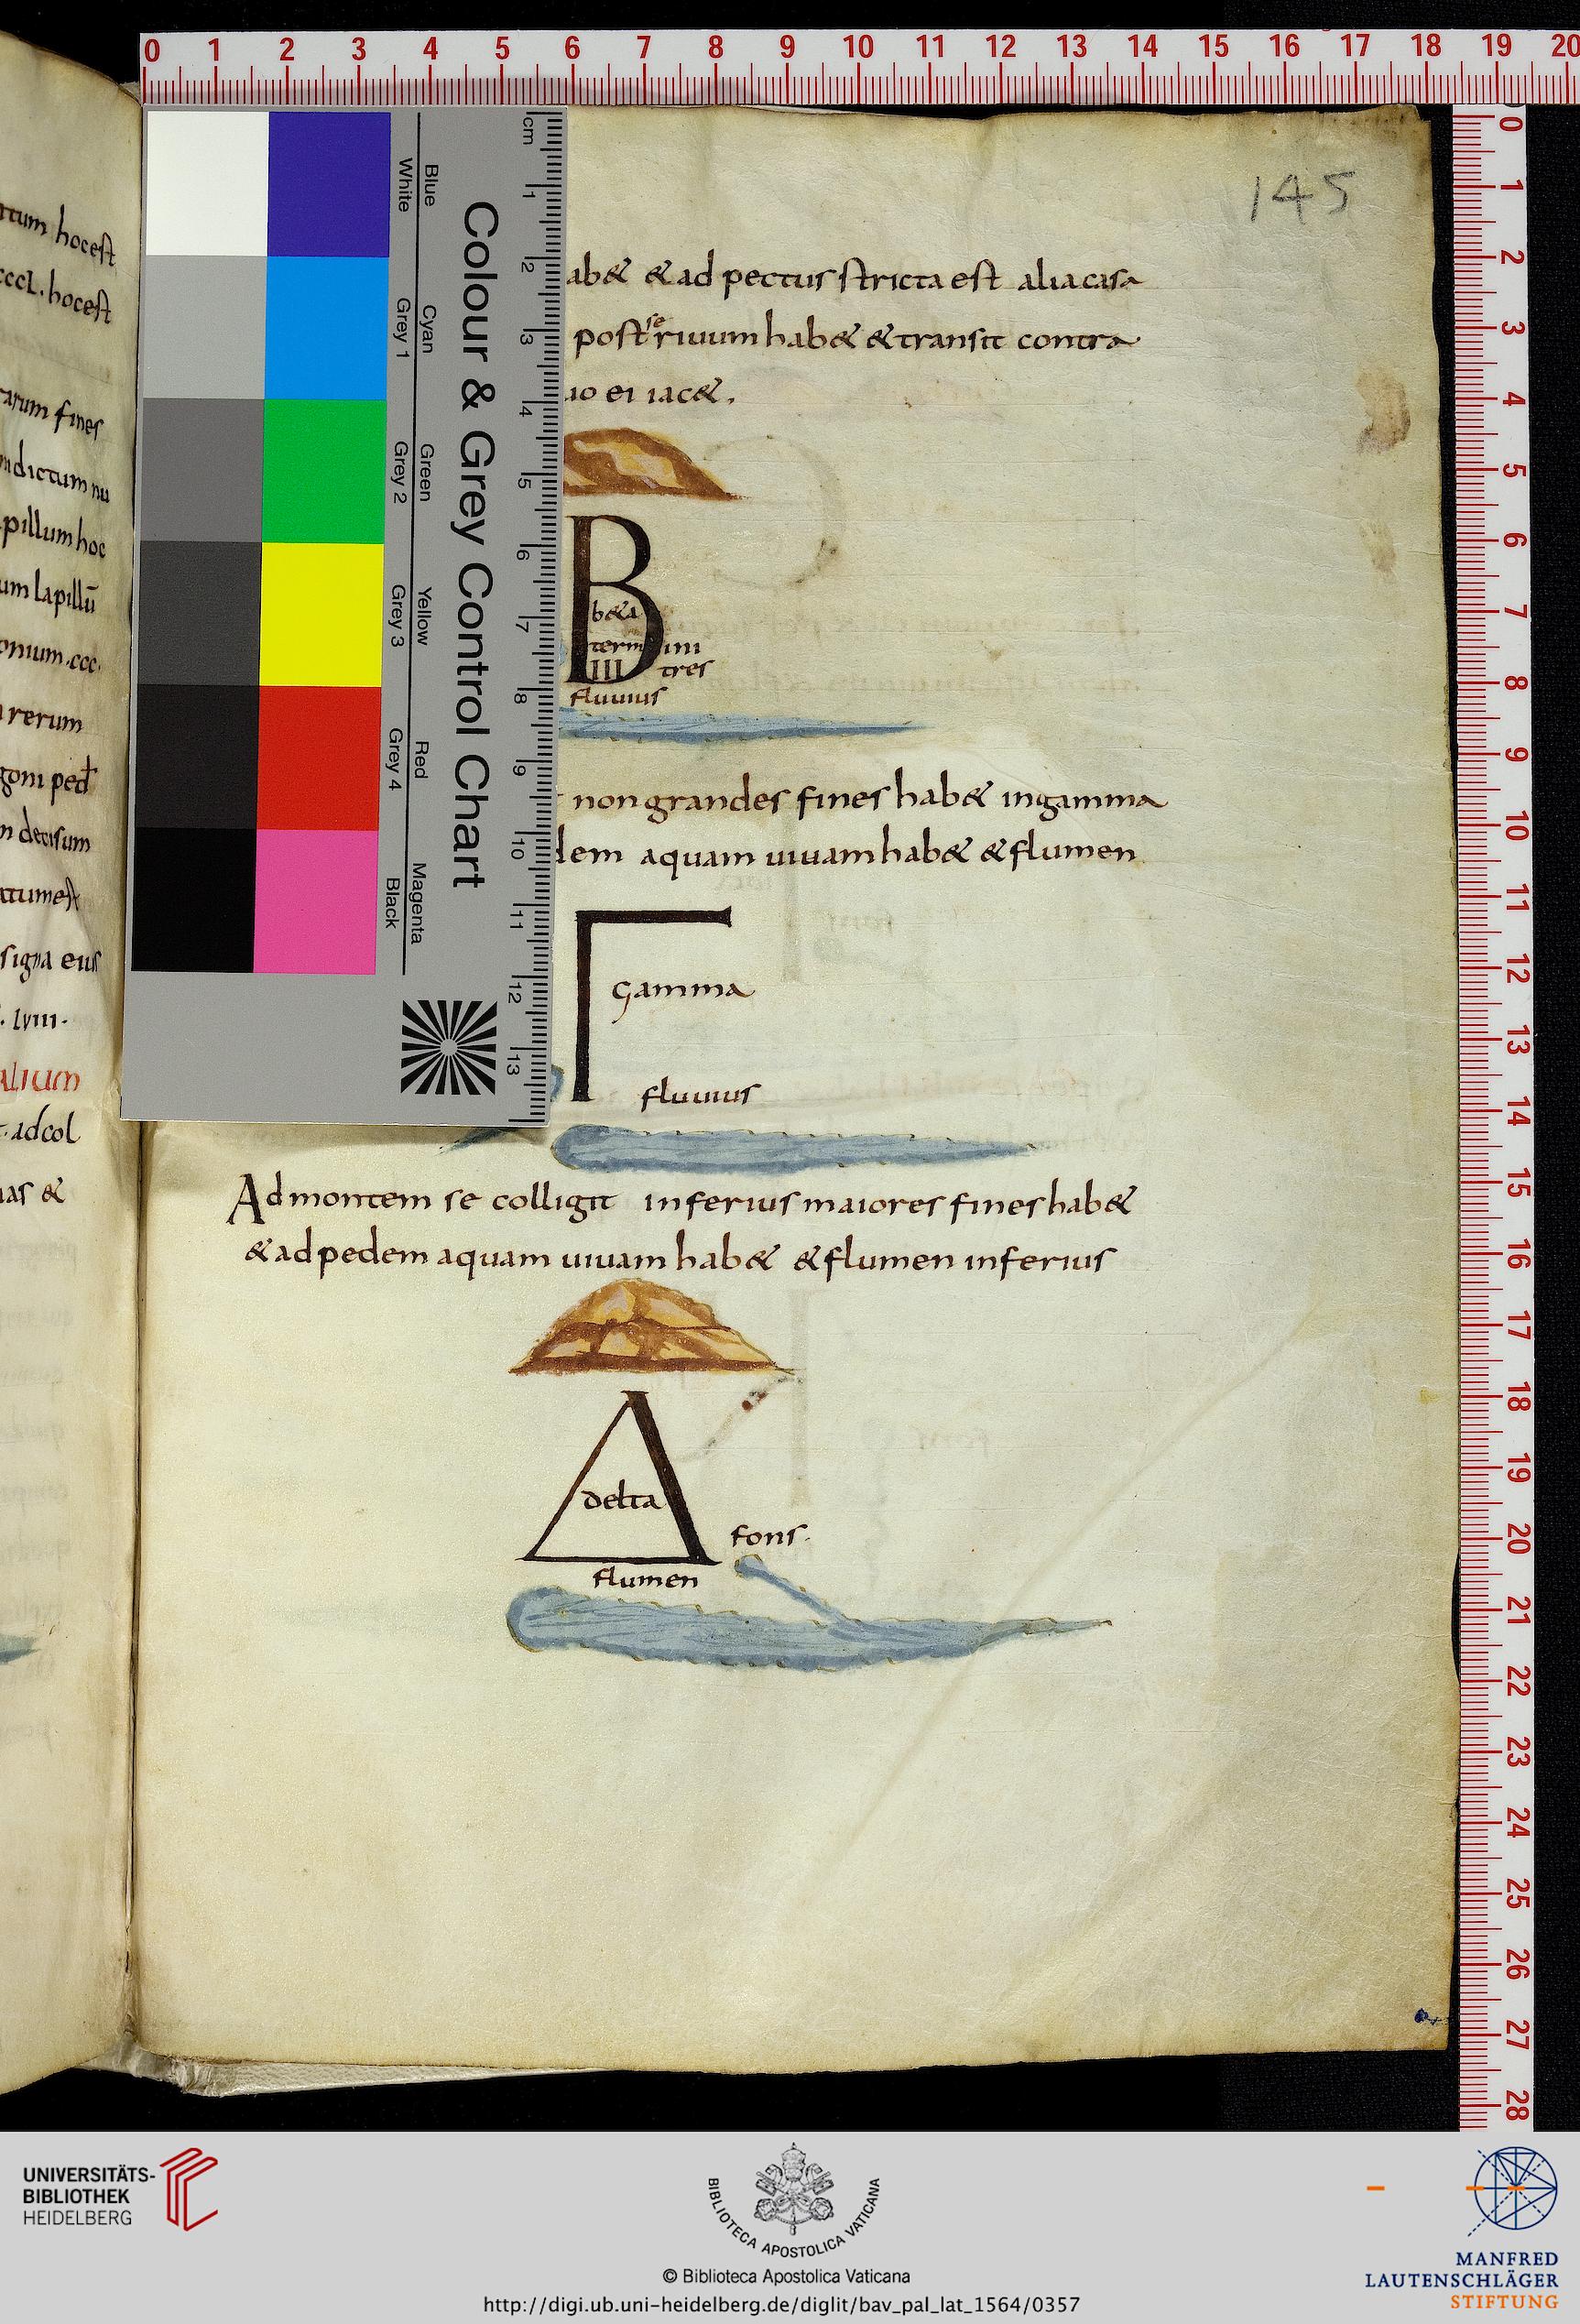 145
&ad pectus stricta est alia casa
post se riuum hab& &transit contra
ei iac&.
B
b&a
termini
III tres
fluuius
non grandes fines hab& in gamma
aquam uiuam hab& &flumen
Γ
gamma
fluuius
Ad montem se colligit inferius maiores fines hab&
&ad pedem aquam uiuam hab& &flumen inferius
Δ
delta
fons.
flumen
hocest
cccl. hocest
fines
dictum nu
hoc
lapillū
ccc.
rerum
decisum
signa eius
lviii.
ad col
&
0 1 2 3 4 5 6 7 8 9 10 11 12 13 14 15 16 17 18 19 20
0 1 2 3 4 5 6 7 8 9 10 11 12 13 14 15 16 17 18 19 20 21 22 23 24 25 26 27 28
Colour & Grey Control Chart
Blue
White
Cyan
Grey 1
Green
Grey 2
Yellow
Grey 3
Red
Grey 4
Magenta
Black
cm 1 2 3 4 5 6 7 8 9 10 11 12 13
UNIVERSITÄTS-
BIBLIOTHEK
HEIDELBERG
BIBLIOTECA APOSTOLICA VATICANA
© Biblioteca Apostolica Vaticana
http://digi.ub.uni-heidelberg.de/diglit/bav_pal_lat_1564/0357
MANFRED
LAUTENSCHLÄGER
STIFTUNG